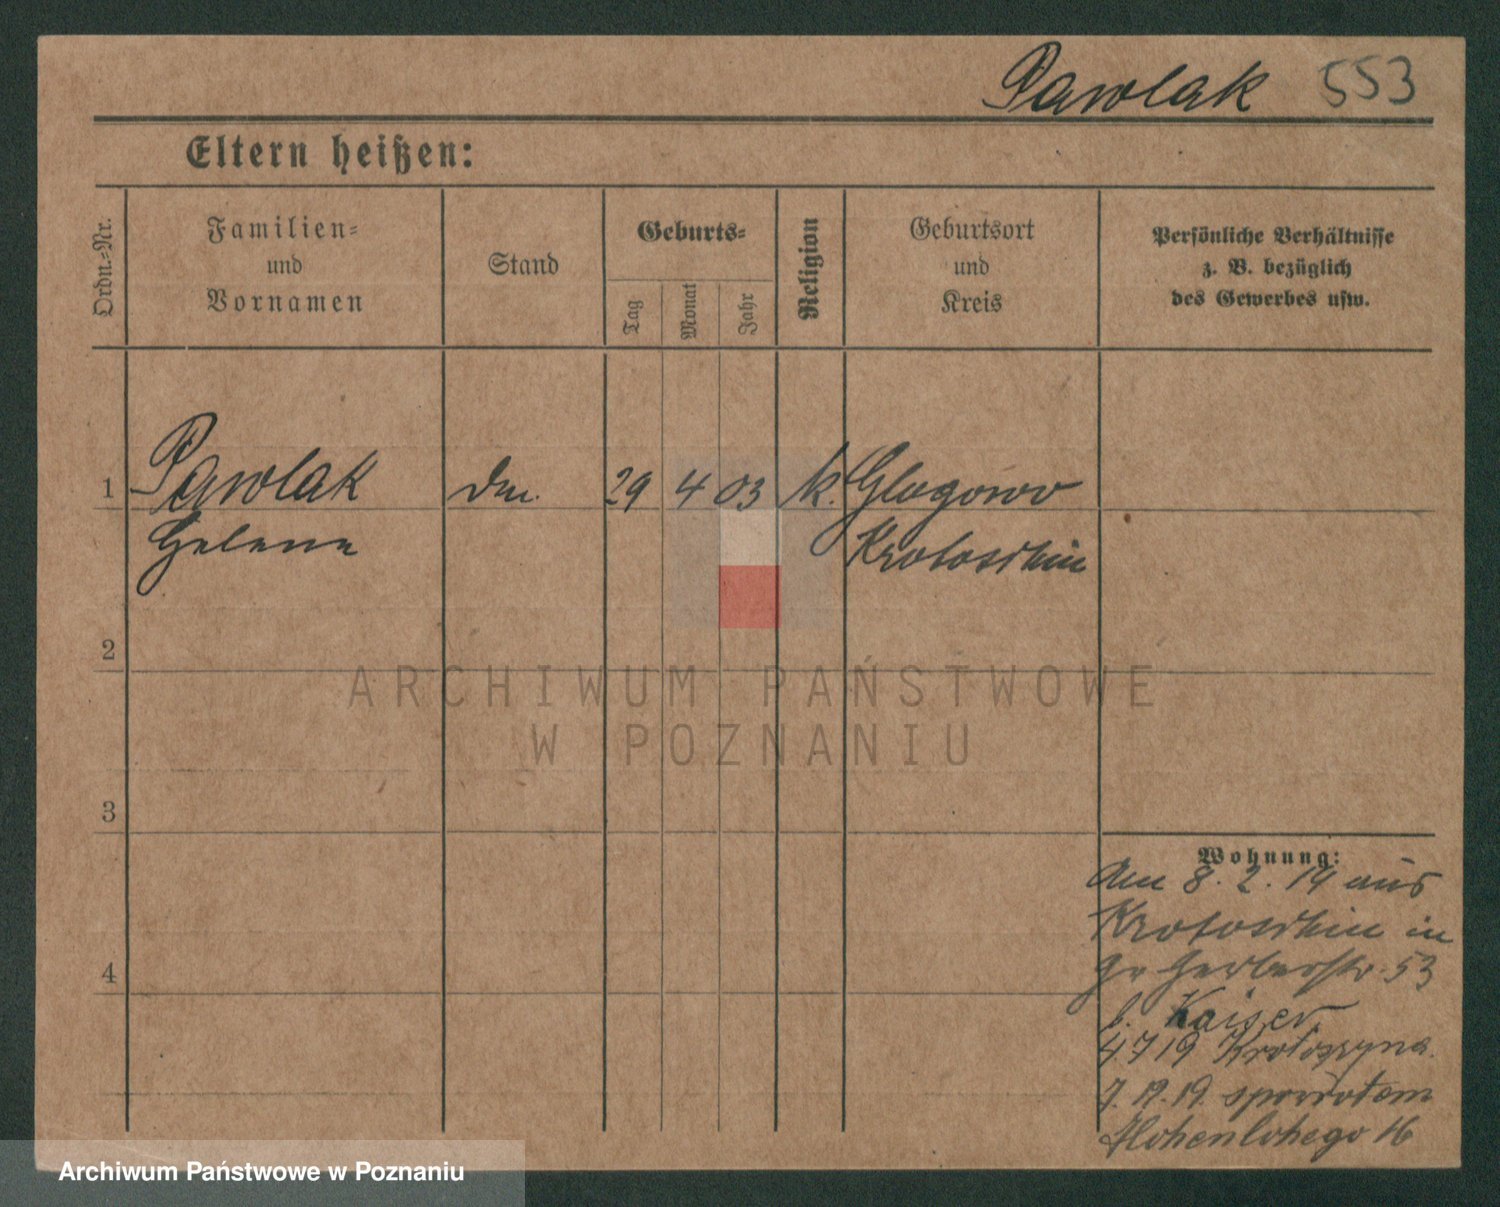 Pawlak 553
Eltern heißen:
Ordn.-Nr.
Familien-
und
Vornamen
Stand
Geburts-
Tag
Monat
Jahr
Religion
Geburtsort
und
Kreis
Persönliche Verhältnisse
z. B. bezüglich
des Gewerbes usw.
1 Pawlak dm. 29 4 03 k. Glogowo
Helene Krotoschin
2
ARCHIWUM PAŃSTWOWE
W POZNANIU
3
Wohnung:
Am 8. 2. 19 aus
Krotoschin in
Gr Gerberstr. 53
b. Kaiser
4 7 19 Krotoszyna.
7. 12. 19. spowrotem
4
Hohenlohego 16
Archiwum Państwowe w Poznaniu